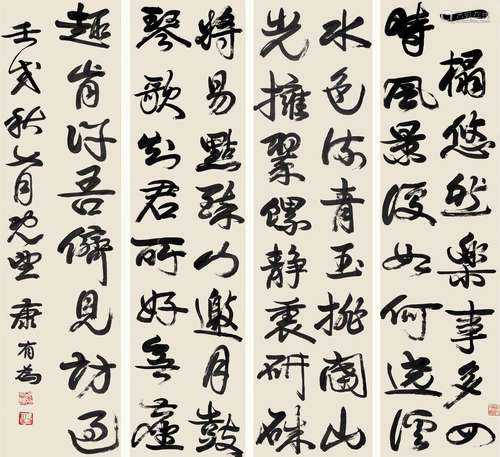 一榻悠然樂事多四
時風景復如何遶溪
水色流青玉排闥山
光擁翠螺靜裏研硃
將易點邀月鼓
琴歌知君所好無塵
趣肯許吾儕見訪過
壬戌秋月 康有為